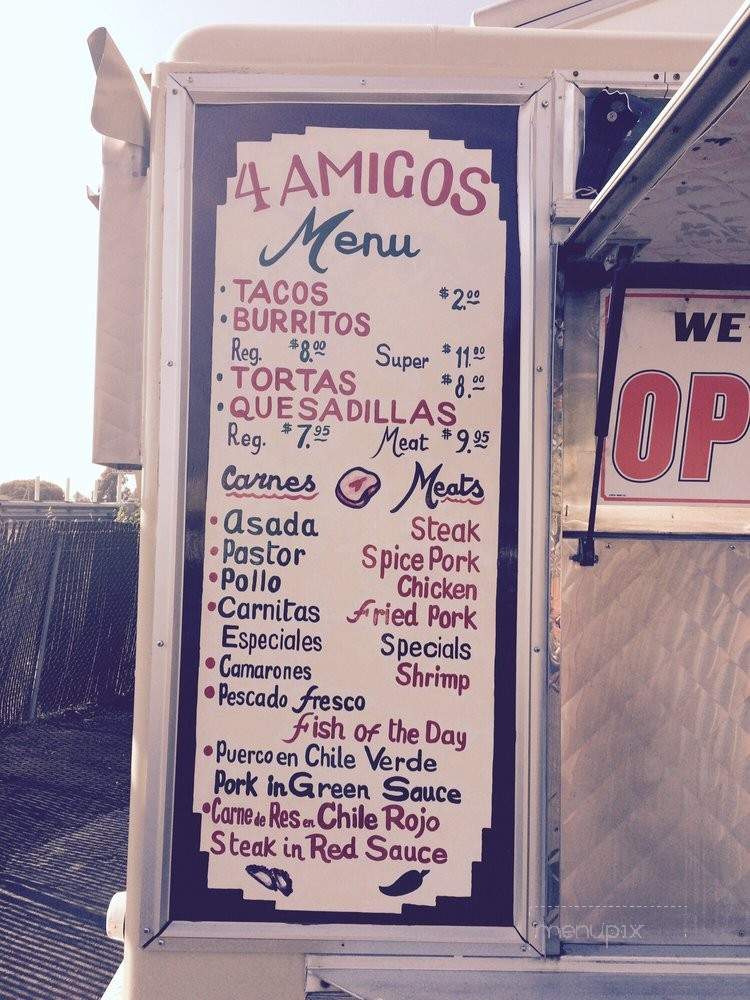 4 AMIGOS
Menu
• TACOS $2.00
• BURRITOS
Reg. $8.00 Super $11.00
• TORTAS $8.00
• QUESADILLAS
Reg. $7.95 Meat $9.95
Carnes Meats
• Asada Steak
• Pastor Spice Pork
• Pollo Chicken
• Carnitas Fried Pork
Especiales Specials
• Camarones Shrimp
• Pescado fresco
Fish of the Day
• Puerco en Chile Verde
Pork in Green Sauce
• Carne de Res en Chile Rojo
Steak in Red Sauce
WE
OP
menupix